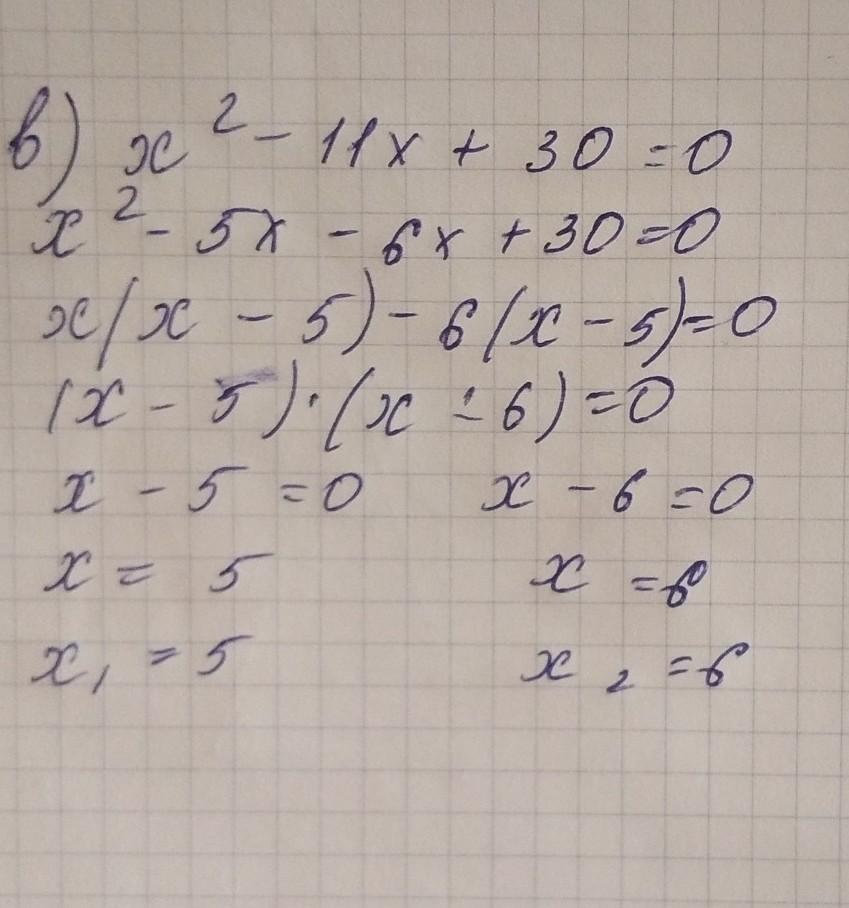 в) x² - 11x + 30 = 0
x² - 5x - 6x + 30 = 0
x(x - 5) - 6(x - 5) = 0
(x - 5) · (x - 6) = 0
x - 5 = 0 x - 6 = 0
x = 5 x = 6
x₁ = 5 x₂ = 6